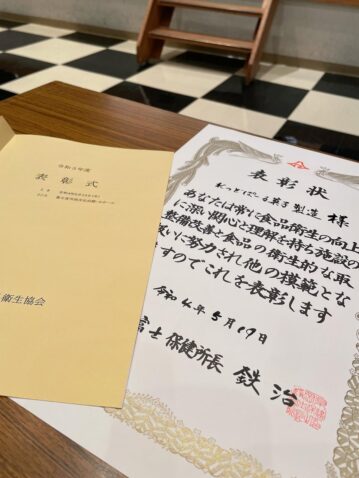 令和3年度
表彰式
衛生協会
表彰状
様
あなたは常に食品衛生の向上
に深い関心と理解を持ち施設の
整備改善と食品の衛生的な取
扱いに努力され他の模範とな
ますのでこれを表彰します
令和4年5月19日
富士保健所長 鉄 治